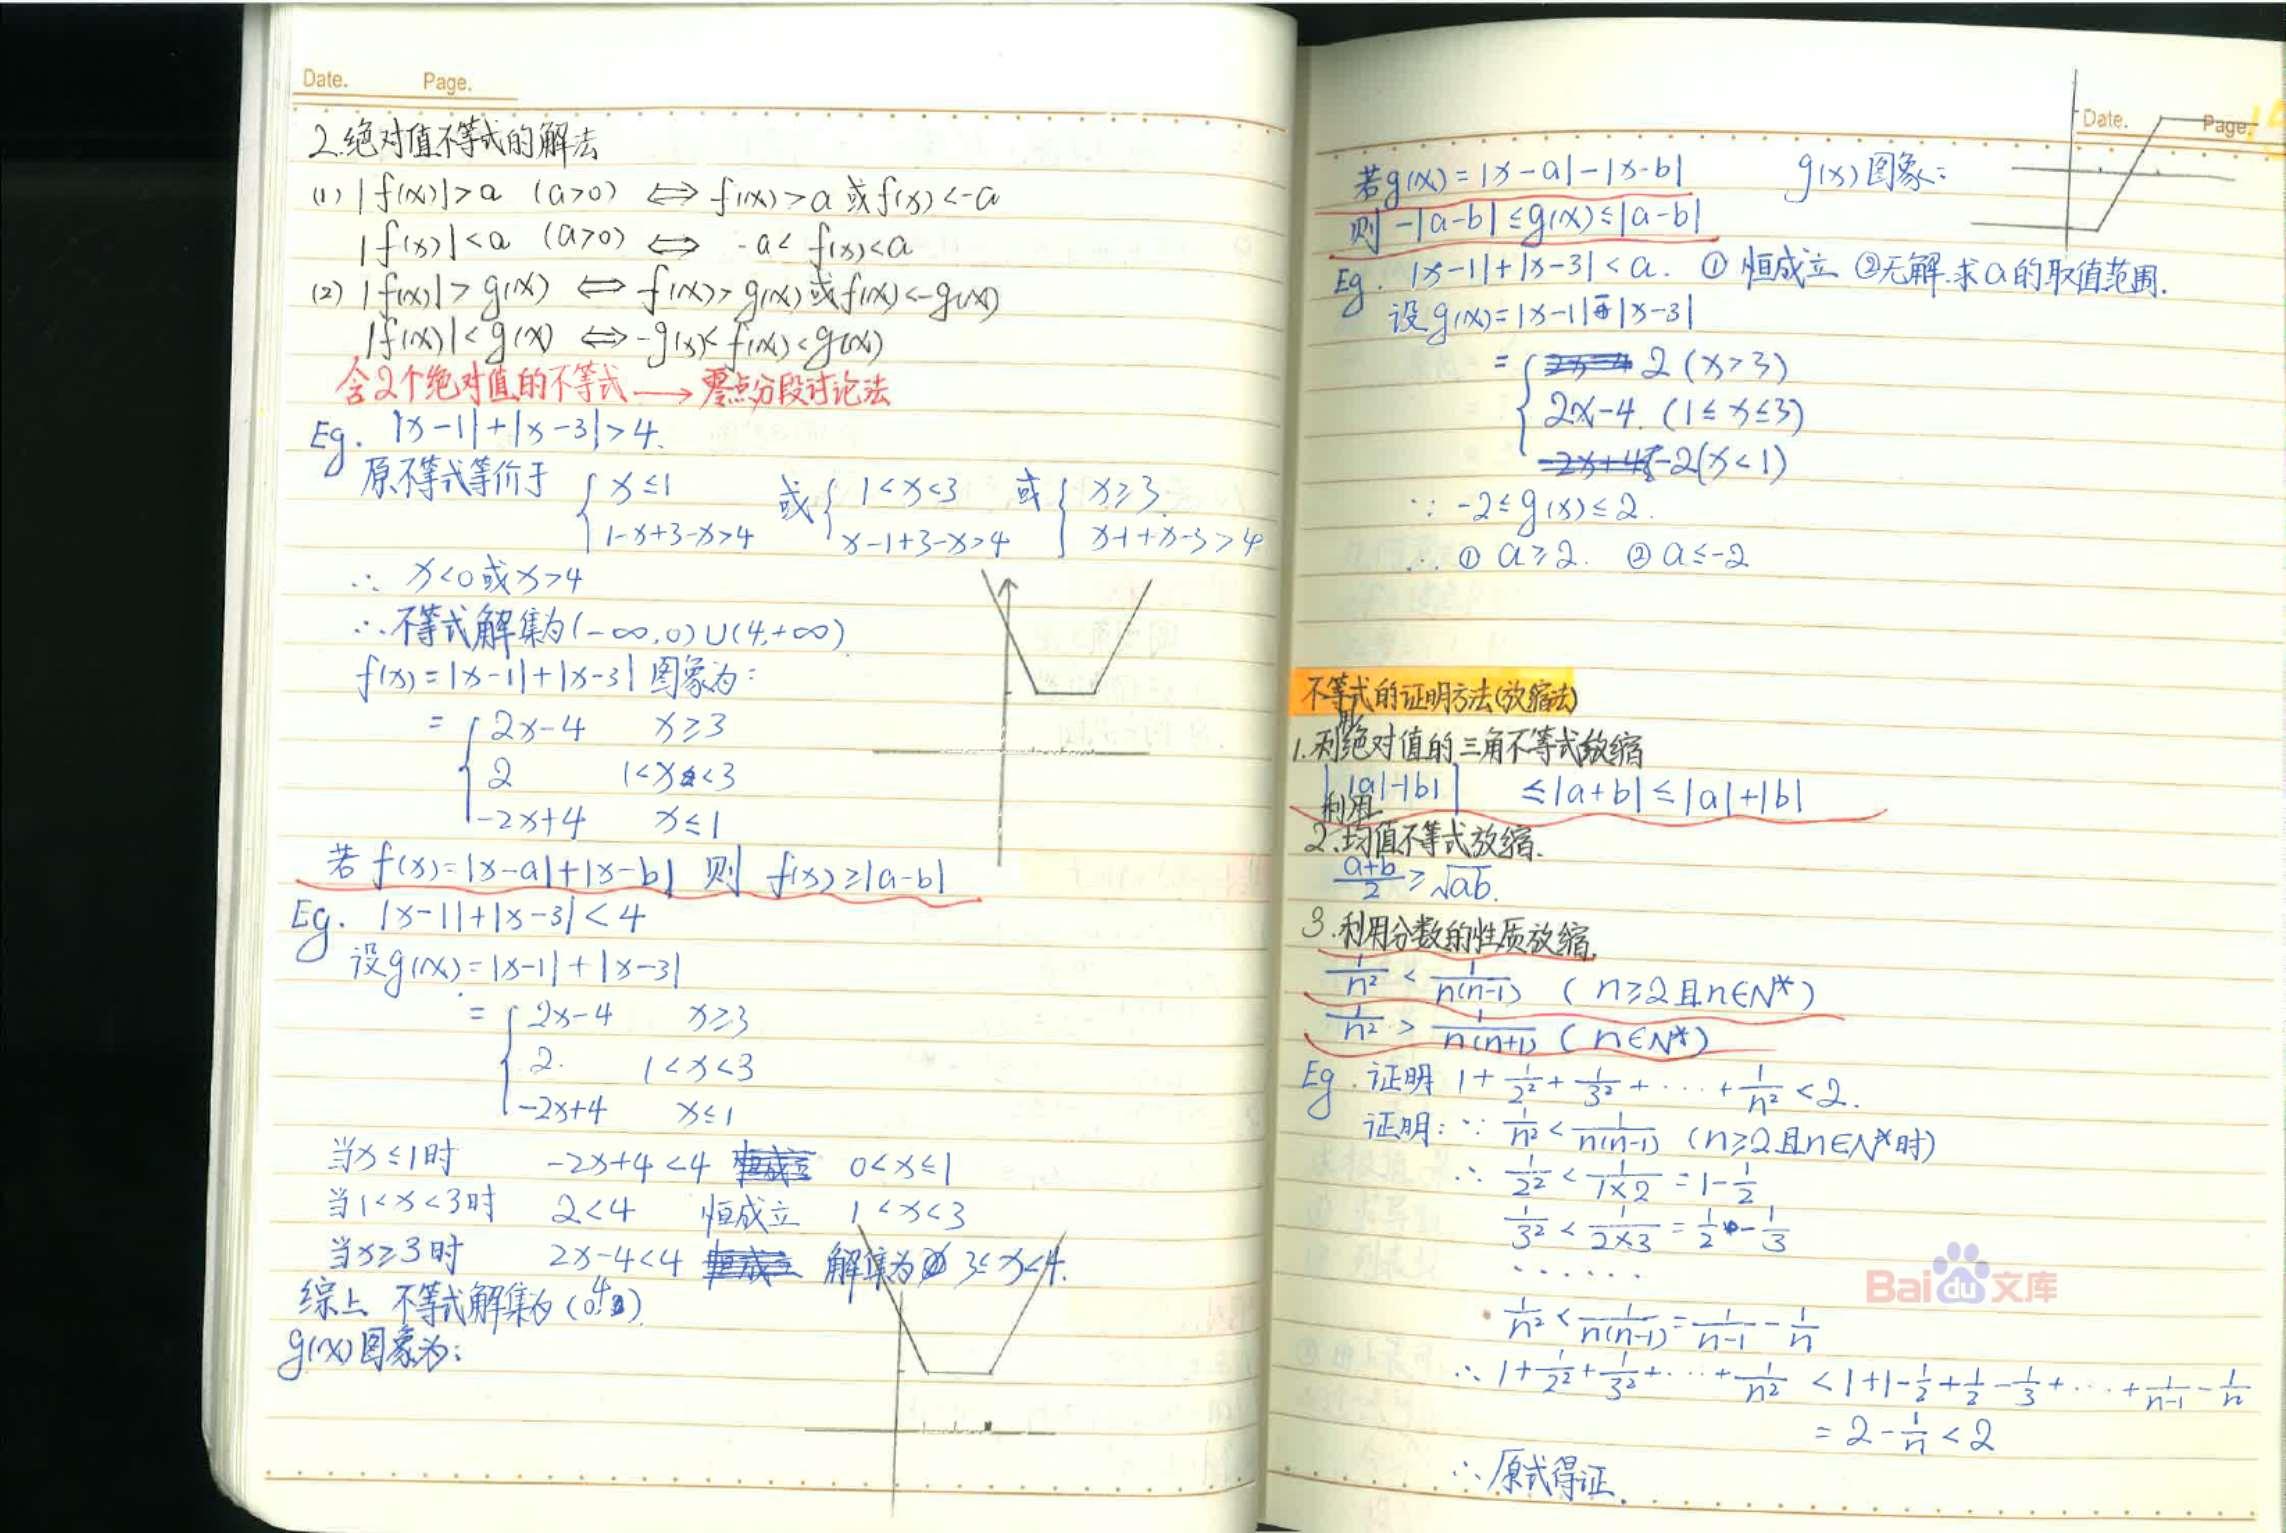 Date. Page.
2.绝对值不等式的解法
(1) |f(x)|>a (a>0) ⇔ f(x)>a 或 f(x)<-a
|f(x)|<a (a>0) ⇔ -a<f(x)<a
(2) |f(x)|>g(x) ⇔ f(x)>g(x) 或 f(x)<-g(x)
|f(x)|<g(x) ⇔ -g(x)<f(x)<g(x)
含2个绝对值的不等式 → 零点分段讨论法
Eg. |x-1|+|x-3|>4.
原不等式等价于 { x≤1 或 { 1<x<3 或 { x≥3.
1-x+3-x>4 x-1+3-x>4 x-1+x-3>4
∴ x<0或x>4
∴不等式解集为(-∞,0)∪(4,+∞)
f(x)=|x-1|+|x-3| 图象为:
= { 2x-4 x≥3
2 1<x<3
-2x+4 x≤1
若 f(x)=|x-a|+|x-b| 则 f(x)≥|a-b|
Eg. |x-1|+|x-3|<4
设g(x)=|x-1|+|x-3|
= { 2x-4 x≥3
2. 1<x<3
-2x+4 x≤1
当x≤1时 -2x+4<4 恒成立 0<x≤1
当1<x<3时 2<4 恒成立 1<x<3
当x≥3时 2x-4<4 恒成立 解集为∅ 3≤x<4.
综上 不等式解集为(0,4)
g(x)图象为:
Date. Page.
若g(x)=|x-a|-|x-b| g(x)图象:
则 -|a-b|≤g(x)≤|a-b|
Eg. |x-1|+|x-3|<a. ① 恒成立 ②无解.求a的取值范围.
设g(x)=|x-1|-|x-3|
= { 2x-4 2 (x>3)
2x-4. (1≤x≤3)
-2x+4 -2(x<1)
∵ -2≤g(x)≤2.
∴ ① a≥2. ② a≤-2
不等式的证明方法(放缩法)
1.利用绝对值的三角不等式放缩
||a|-|b|| ≤|a+b|≤|a|+|b|
2.利用均值不等式放缩.
(a+b)/2≥√ab.
3.利用分数的性质放缩.
1/n² < 1/n(n-1) (n≥2且n∈N*)
1/n² > 1/n(n+1) (n∈N*)
Eg. 证明 1+1/2²+1/3²+···+1/n²<2.
证明:∵ 1/n²<1/n(n-1) (n≥2且n∈N*时)
∴ 1/2²<1/1×2=1-1/2
1/3²<1/2×3=1/2-1/3
······
1/n²<1/n(n-1)=1/n-1-1/n
∴ 1+1/2²+1/3²+···+1/n² <1+1-1/2+1/2-1/3+···+1/n-1-1/n
=2-1/n<2
∴原式得证.
Bai du 文库